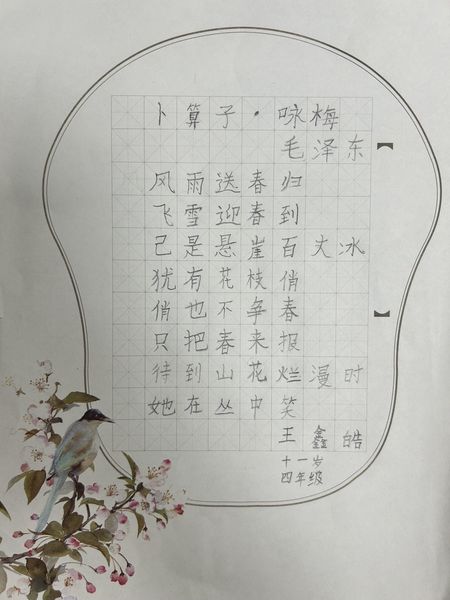 卜算子·咏梅
毛泽东
风雨送春归
飞雪迎春到
已是悬崖百丈冰
犹有花枝俏
俏也不争春
只把春来报
待到山花烂漫时
她在丛中笑
王鑫皓
十一岁
四年级